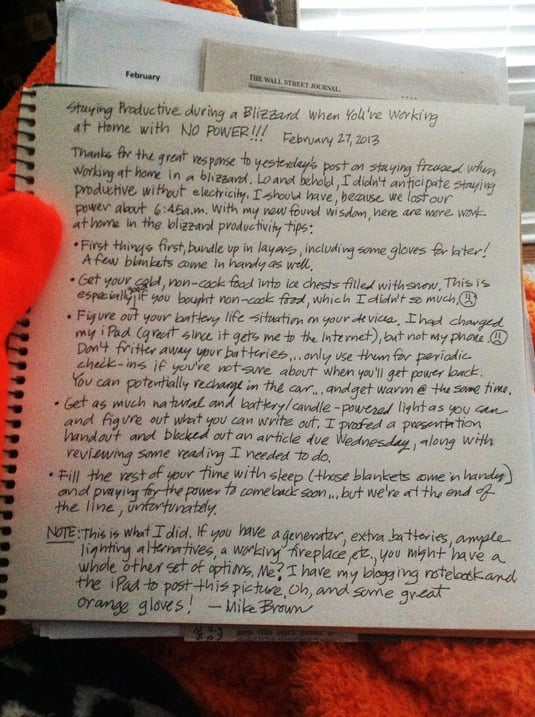 February
THE WALL STREET JOURNAL.
Staying Productive during a Blizzard when You're Working
at Home with NO POWER!!! February 27, 2013
Thanks for the great response to yesterday's post on staying focused when
working at home in a blizzard. Lo and behold, I didn't anticipate staying
productive without electricity. I should have, because we lost our
power about 6:45a.m. With my new found wisdom, here are more work-
at home in the blizzard productivity tips:
• First things first, bundle up in layers, including some gloves for later!
A few blankets come in handy as well.
• Get your cold, non-cook food into ice chests filled with snow. This is
especially good if you bought non-cook food, which I didn't so much. ☹
• Figure out your battery life situation on your devices. I had charged
my iPad (great since it gets me to the Internet), but not my phone. ☹
Don't fritter away your batteries... only use them for periodic
check-ins if you're not sure about when you'll get power back.
You can potentially recharge in the car... and get warm @ the same time.
• Get as much natural and battery/candle-powered light as you can
and figure out what you can write out. I proofed a presentation
handout and blocked out an article due Wednesday, along with
reviewing some reading I needed to do.
• Fill the rest of your time with sleep (those blankets come in handy)
and praying for the power to come back soon... but we're at the end of
the line, unfortunately.
NOTE: This is what I did. If you have a generator, extra batteries, ample
lighting alternatives, a working fireplace, etc., you might have a
whole other set of options. Me? I have my blogging notebook and
the iPad to post this picture. Oh, and some great
orange gloves! — Mike Brown